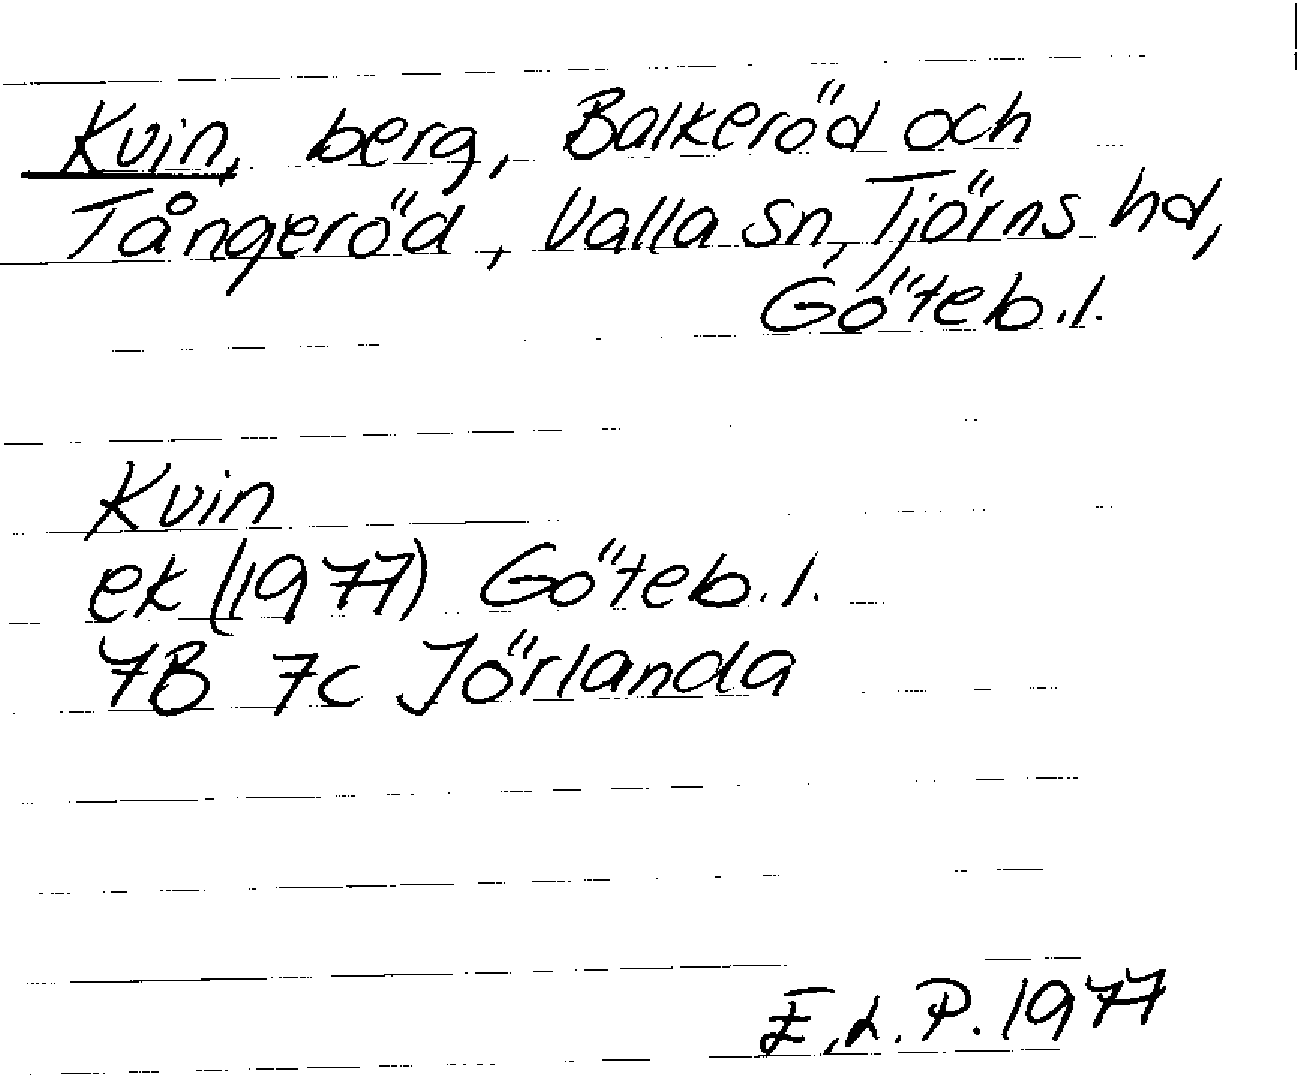 Kvin, berg, Balkeröd och
Tångeröd, Valla sn, Tjörns hd,
Göteb.l.
Kvin
ek (1977) Göteb.l.
7B 7c Jörlanda
E.d.P. 1977